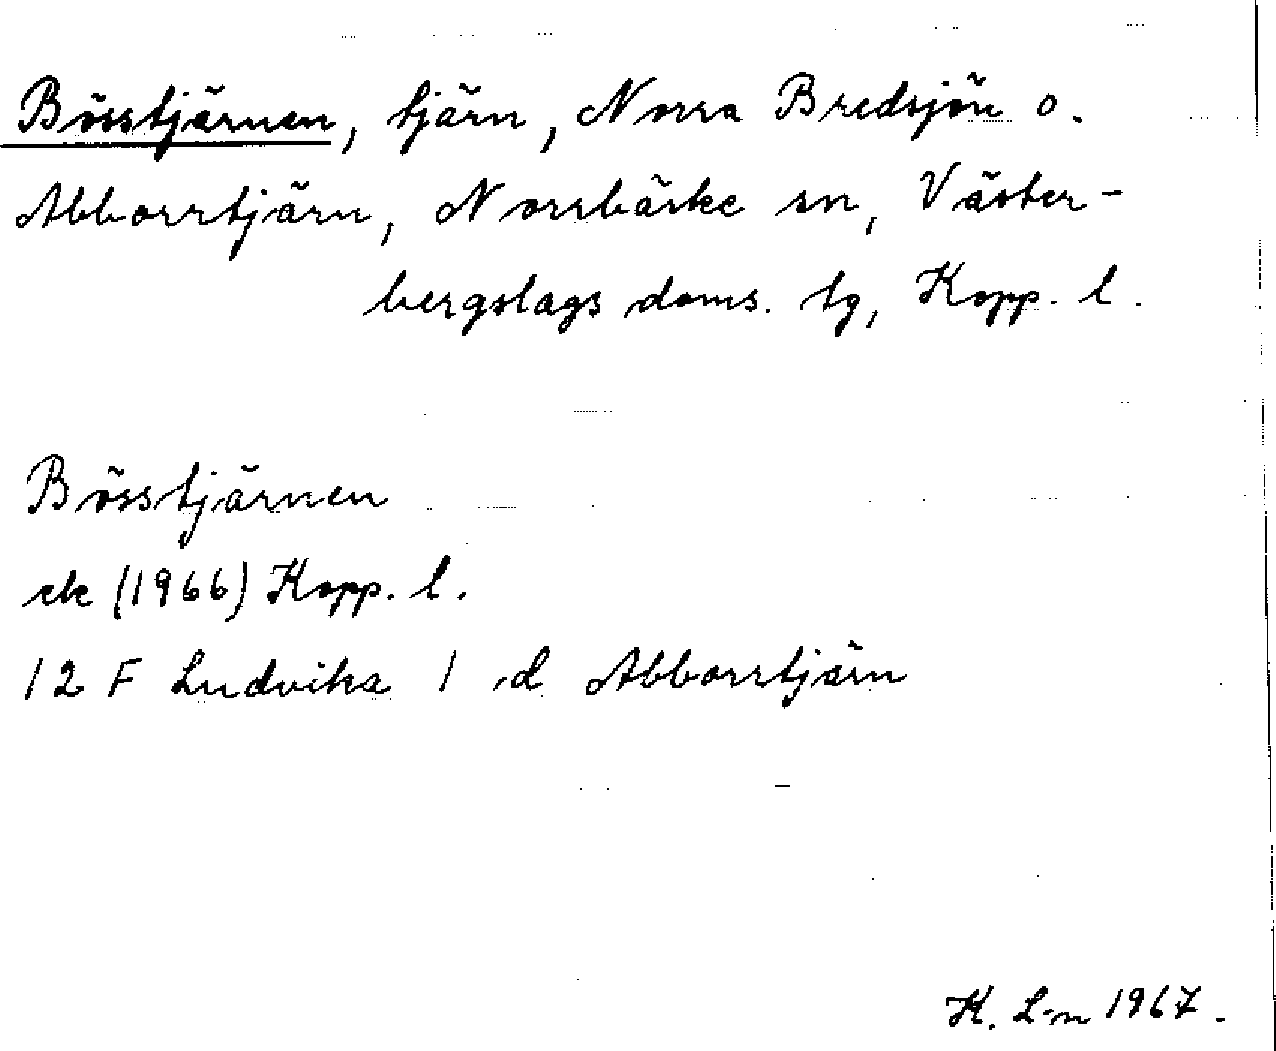 Bösstjärnen, tjärn, Norra Bredsjön o.
Abborrtjärn, Norrbärke sn, Väster-
bergslags doms. tg, Kopp. l.
Bösstjärnen
ek (1966) Kopp. l.
12 F Ludvika 1 d Abborrtjärn
K. L-n 1967.